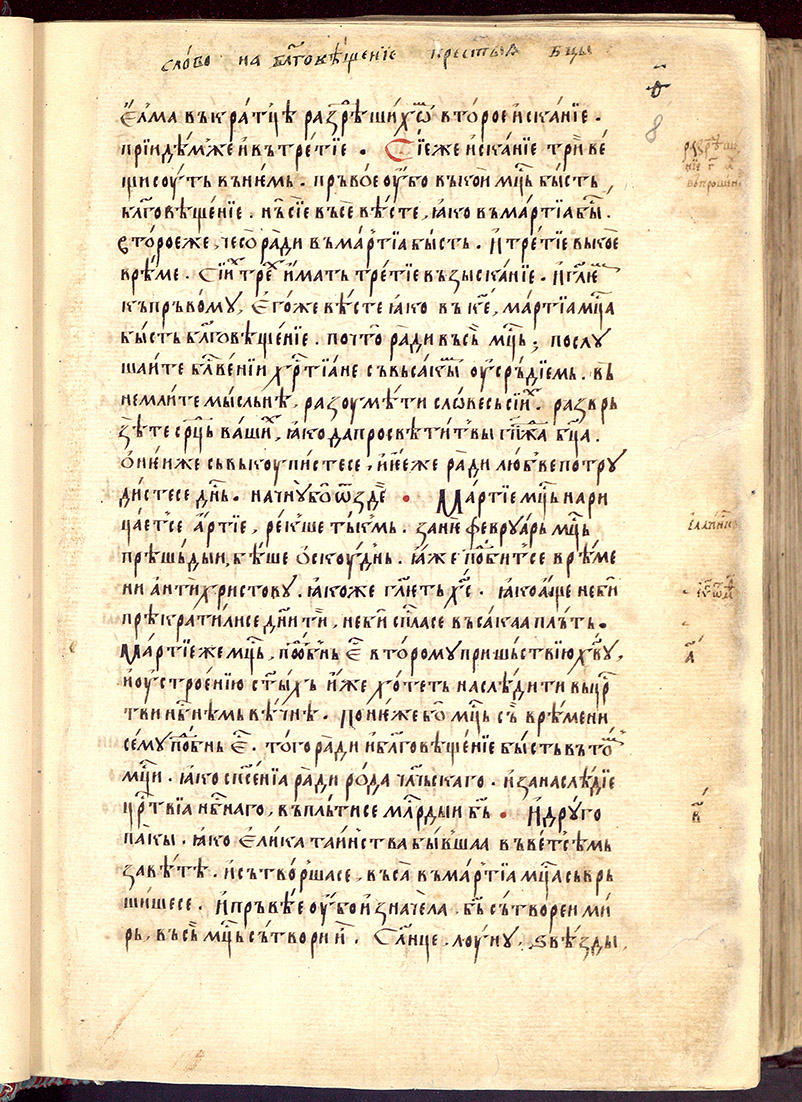 слово на бл҃говѣщенїе прес҃тыѧ бц҃ы
ѳ҃
8
Є҆лма въкра́тцѣ разрѣши́хѡⷨ второе и҆ска́нїе .
прїиде́мже и҆ въ тре́тїе . Сїе́же и҆ска́нїе трѝ ве́
щи соуть въ не́мь . пръ́вое оу҆́бо въ ко́и мц҃ь бы́сть
бл҃гові́щенїе . нъ̀ сїе въсѐ вѣ́сте , ꙗ҆ко въ ма́ртїа бы̀ .
второеже , чесо̀ ра́ди въ ма́ртїа бысть . И҆ тре́тїе въ кое
врѣ́ме . Си́иⷯ треⷯ и҆́мать тре́тїе възыска́нїе . и҆ гл҃юⷳ
къ пръво́му , Є҆го́же вѣ́сте ꙗ҆ко въ ке҃ , ма́ртїа мц҃а
бы́сть бл҃говѣ́щенїе . почто̀ ра́ди въ съ̀ мц҃ь ; послу
шайте бл҃ве́нїи хр҃тїа́не съ въса́кыⷨ оу҆сръ́дїемь . въ
немли́те мы́сльнѣ , разоумѣ́ти словесь си́иⷯ . разврь
зѣ́те ср҃ць ва́шиⷯ , ꙗ҆ко да просвѣти́т вы гп҃жа бц҃а .
ѡ҆ не́иже съвъкоупи́стесе , и҆ нѥ́еже ра́ди любве потру
ди́стесе дн҃ь . начнꙋ̀ бо ѿ зде . Ма́ртїе мц҃ь нари
ца́етсе а҆́ртїе , ре́кше тькмь . занѥ февруарь мц҃ь
прѣшьды́и , бѣ́ше ѡ҆скоу́днь . ꙗ҆́же поⷣбитсе врѣ́ме
ни антїхристову . ꙗ҆коже гл҃еть хс҃ . ꙗ҆ко а҆́ще небы̀
прѣкрати́лисе дн҃и тїи̑ , небы̀ сп҃ласе въсакаа плъть .
Ма́ртїеже мц҃ь , поⷣбнь є҆ⷭ второму пришьствїю хв҃у ,
и҆ оу҆строе́нїю ст҃ыхь и҆́же хо́теть наслѣ́дити въ црⷭ
тви нбⷭнѣмь вѣ́чнѣ . Поне́же бо мц҃ь съ̀ врѣ́мени
се́му поⷣбнь єⷭ . то́го ра́ди и҆ бл҃говѣ́щенїе бы́сть въ тоⷨ
мц҃и . ꙗ҆ко сп҃се́нїа ра́ди ро́да чл҃чьскаго . и҆ за наслѣ́дїе
црⷭтвїа нбⷭнаго , въпль́тисе млⷭрдыи бъ҃ . И҆ дру́го
па́кы . ꙗ҆ко є҆ли́ка та́инства бы́вшаа въ ве́тсѣмь
завѣ́тѣ . и҆ сътво́ршасе , въса̀ въ ма́ртїа мц҃а съвръ
ши́шесе . И҆ пръвѣе оу҆́бо и҆знача́ела . бъ҃ сътво́рен ми
рь , въ съ̀ мц҃ь сътво́ри и҆̀ . Слн҃це . лоу́ну , ѕвѣ́зды ,
а҃
в҃